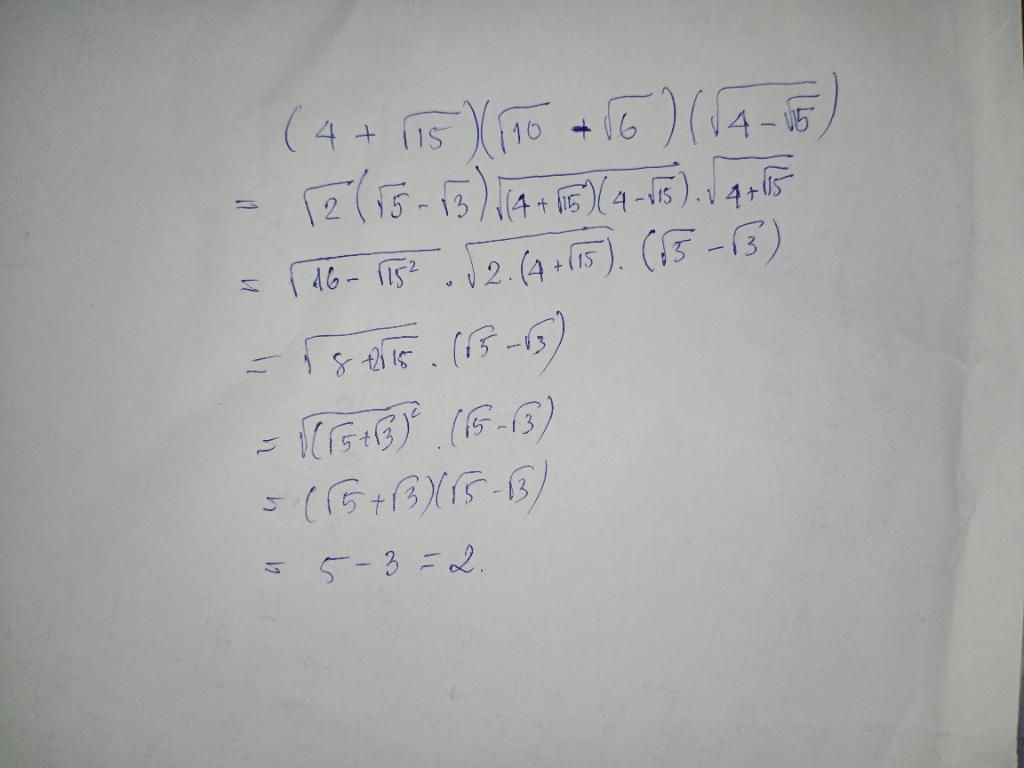 (4 + √15)(√10 - √6)(√(4 - √15))
= √2(√5 - √3)√((4 + √15)(4 - √15)) . √(4 + √15)
= √(16 - √15²) . √(2.(4 + √15)) . (√5 - √3)
= √(8 + 2√15) . (√5 - √3)
= √((√5 + √3)²) . (√5 - √3)
= (√5 + √3)(√5 - √3)
= 5 - 3 = 2.